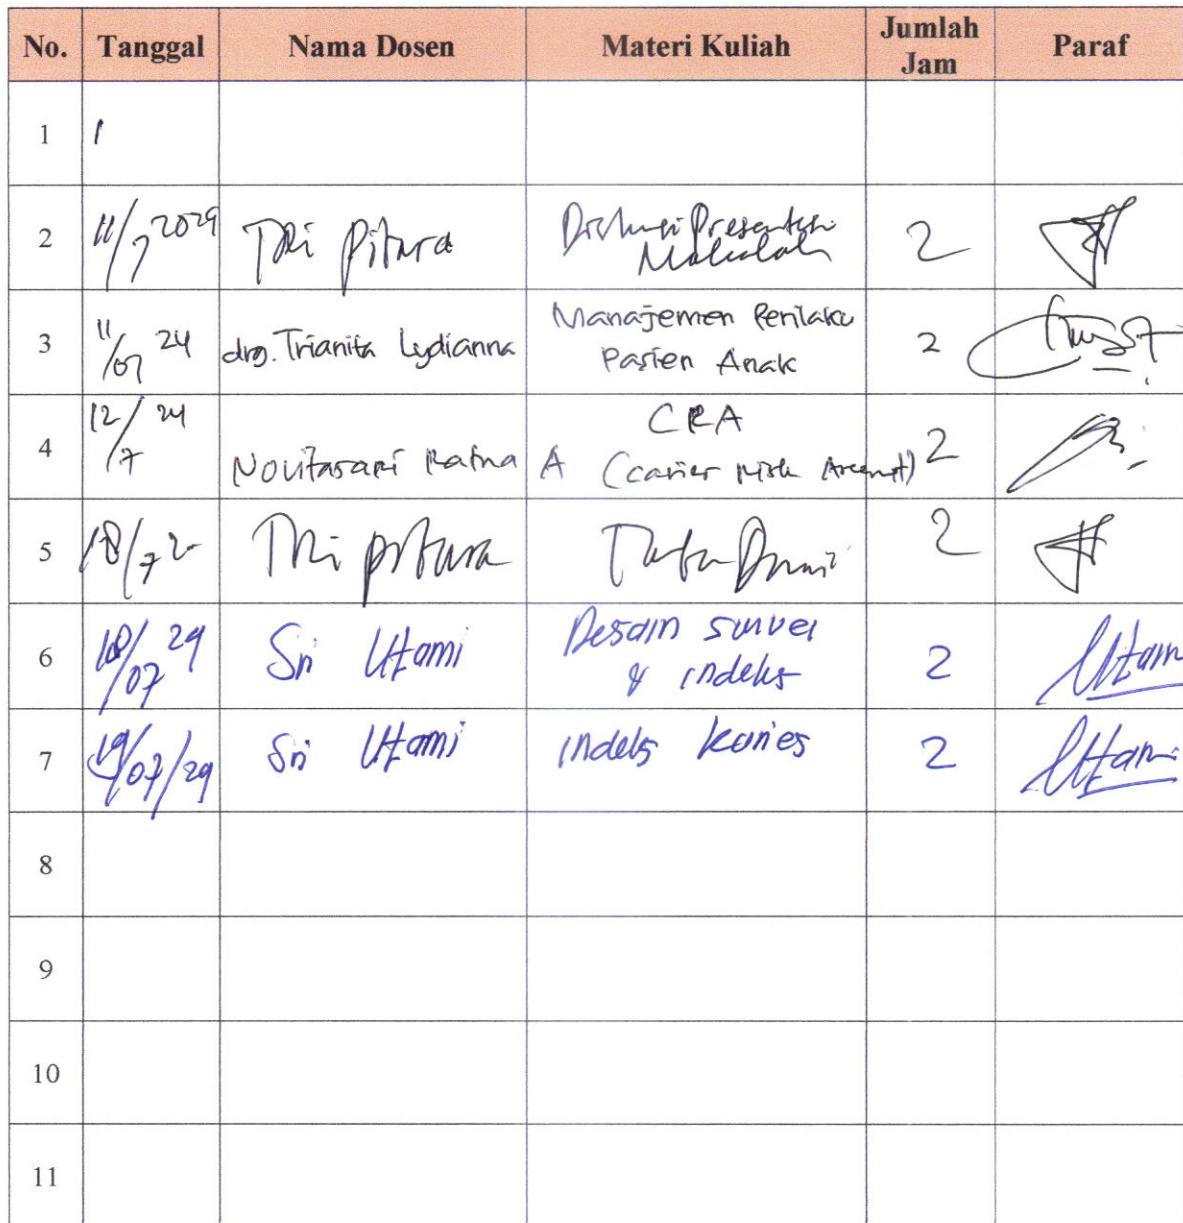 No. Tanggal Nama Dosen Materi Kuliah Jumlah Jam Paraf
1
2 11/7 2024 Tri Pitara Diskusi Presentasi Makalah 2
3 11/07 24 drg. Trianita Lydianna Manajemen Perilaku Pasien Anak 2
4 12/7 24 Novitasari Ratna A CRA (Caries Risk 2
5 18/7 Tri Pitara 2
6 18/07 24 Sri Utami Desain survei & indeks 2 Utami
7 19/07/24 Sri Utami indeks karies 2 Utami
8
9
10
11